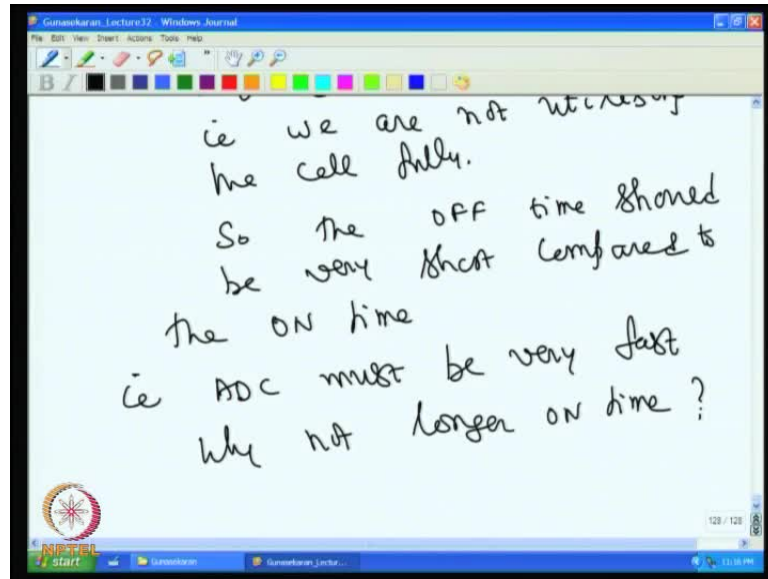 Gunasekaran_Lecture32 - Windows Journal
File Edit View Insert Actions Tools Help
B I
ie we are not utilising
the cell fully.
So the OFF time should
be very short compared to
the ON time
ie ADC must be very fast
why not longer ON time ?
128 / 128
NPTEL
start Gunasekaran Gunasekaran_Lectur... 11:16 PM